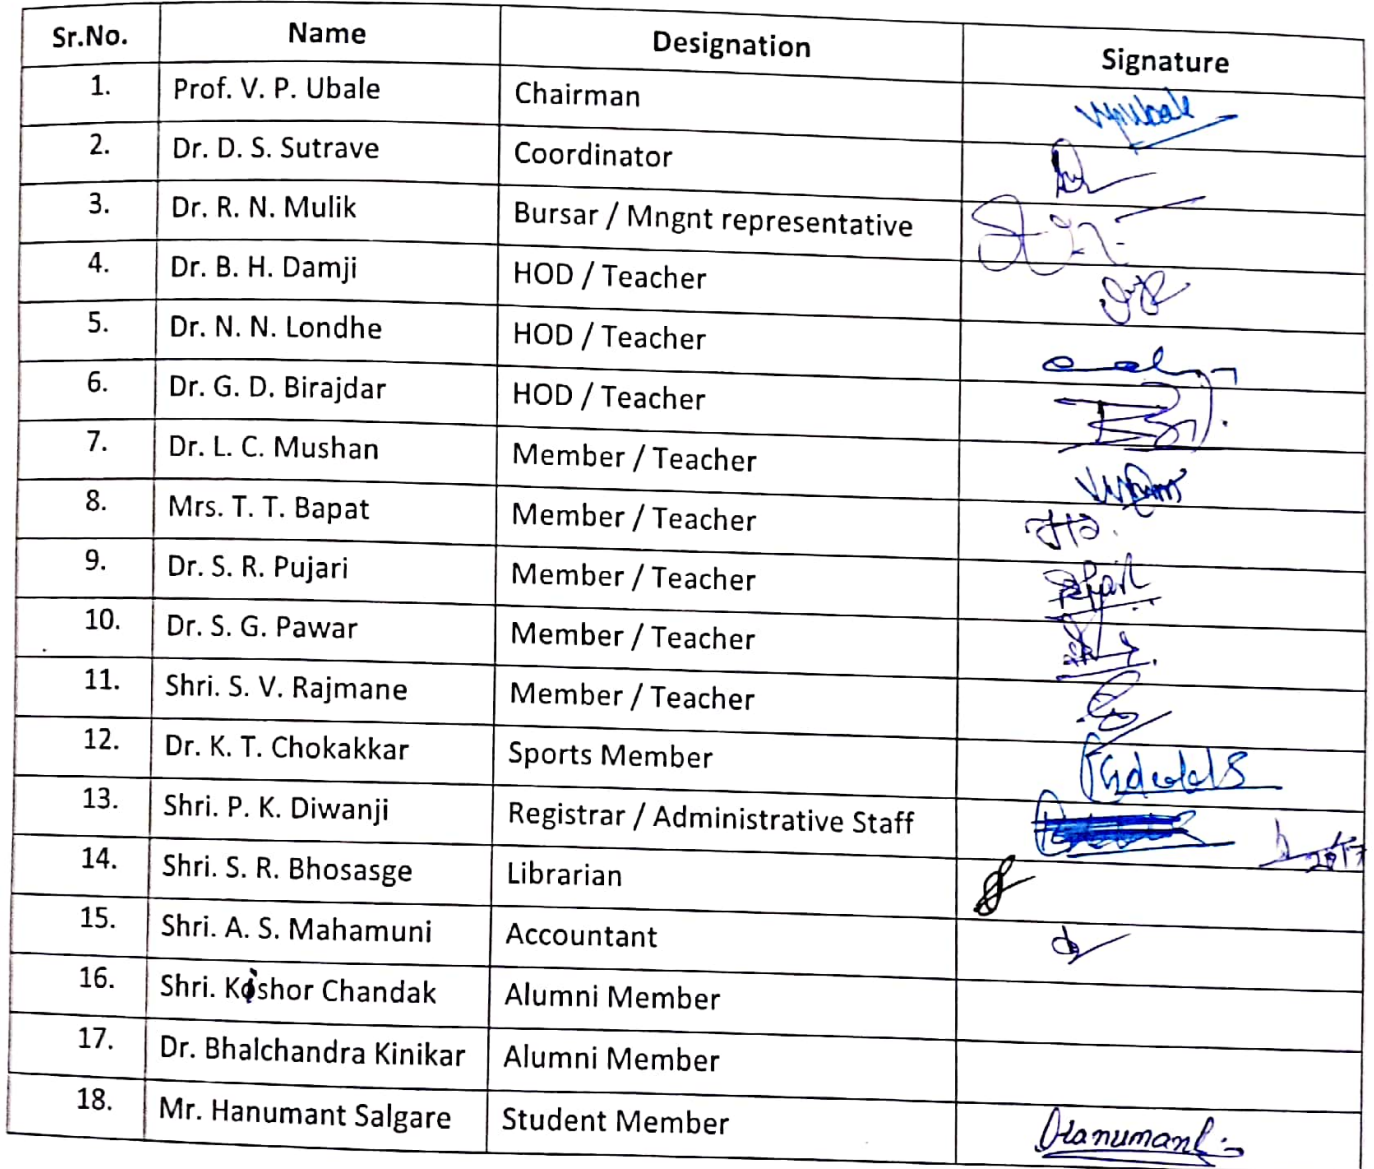 Sr.No. Name Designation Signature
1. Prof. V. P. Ubale Chairman Vpubale
2. Dr. D. S. Sutrave Coordinator
3. Dr. R. N. Mulik Bursar / Mngnt representative
4. Dr. B. H. Damji HOD / Teacher
5. Dr. N. N. Londhe HOD / Teacher
6. Dr. G. D. Birajdar HOD / Teacher
7. Dr. L. C. Mushan Member / Teacher
8. Mrs. T. T. Bapat Member / Teacher
9. Dr. S. R. Pujari Member / Teacher
10. Dr. S. G. Pawar Member / Teacher
11. Shri. S. V. Rajmane Member / Teacher
12. Dr. K. T. Chokakkar Sports Member
13. Shri. P. K. Diwanji Registrar / Administrative Staff
14. Shri. S. R. Bhosasge Librarian
15. Shri. A. S. Mahamuni Accountant
16. Shri. Kishor Chandak Alumni Member
17. Dr. Bhalchandra Kinikar Alumni Member
18. Mr. Hanumant Salgare Student Member Hanumant